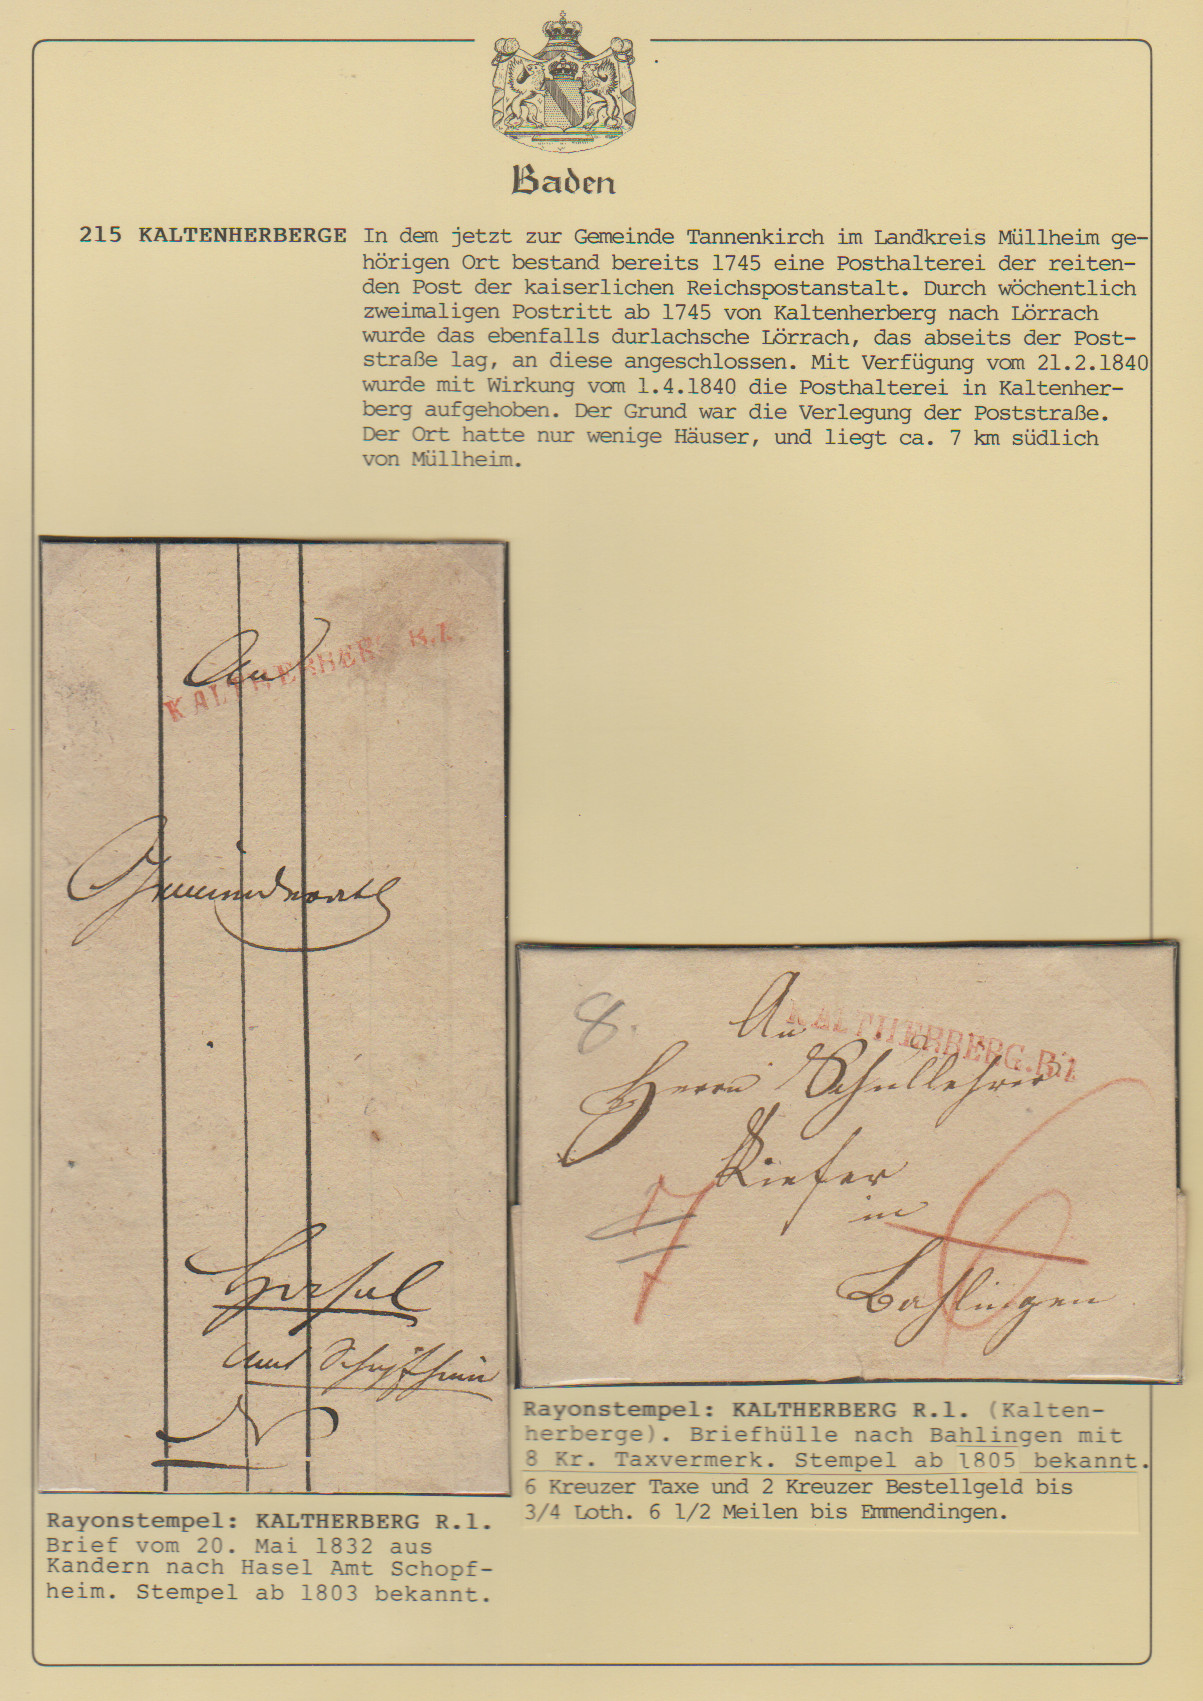 Baden
215 KALTENHERBERGE In dem jetzt zur Gemeinde Tannenkirch im Landkreis Müllheim ge-
hörigen Ort bestand bereits 1745 eine Posthalterei der reiten-
den Post der kaiserlichen Reichspostanstalt. Durch wöchentlich
zweimaligen Postritt ab 1745 von Kaltenherberg nach Lörrach
wurde das ebenfalls durlachsche Lörrach, das abseits der Post-
straße lag, an diese angeschlossen. Mit Verfügung vom 21.2.1840
wurde mit Wirkung vom 1.4.1840 die Posthalterei in Kaltenher-
berg aufgehoben. Der Grund war die Verlegung der Poststraße.
Der Ort hatte nur wenige Häuser, und liegt ca. 7 km südlich
von Müllheim.
An
KALTHERBERG R.1.
Hasel
Amt Schopfheim
Rayonstempel: KALTHERBERG R.1.
Brief vom 20. Mai 1832 aus
Kandern nach Hasel Amt Schopf-
heim. Stempel ab 1803 bekannt.
8.
An
KALTHERBERG.R.1
Herrn Schullehrer
Kiefer
in
Bahlingen
7
6
Rayonstempel: KALTHERBERG R.1. (Kalten-
herberge). Briefhülle nach Bahlingen mit
8 Kr. Taxvermerk. Stempel ab 1805 bekannt.
6 Kreuzer Taxe und 2 Kreuzer Bestellgeld bis
3/4 Loth. 6 1/2 Meilen bis Emmendingen.